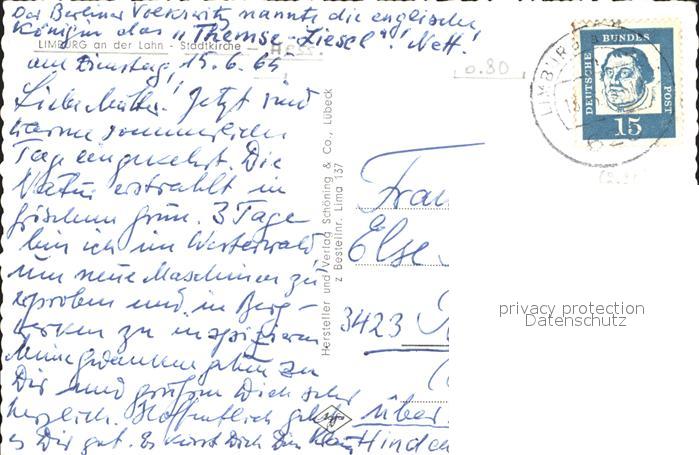 Der Berliner Volkswitz nannte die englische
Königin das „Themse-Liesel"! Nett!
LIMBURG an der Lahn - Stadtkirche
am Dienstag, 15.6.65
0.80
Liebe Mutter! Jetzt sind
warme sommerliche
Tage eingekehrt. Die
Natur erstrahlt in
frischem Grün. 3 Tage
bin ich im Westerwald
um neue Maschinen zu
erproben und in Berg-
werken zu inspizieren
Meine Gedanken gehen zu
Dir und grüßen Dich sehr
herzlich. Hoffentlich geht
es Dir gut. Es küsst Dich Dein
Hersteller und Verlag Schöning & Co., Lübeck
z Bestellnr. Lima 137
LIMBURG
DEUTSCHE BUNDESPOST
15
Frau
Else
3423
über
Hinden
privacy protection
Datenschutz